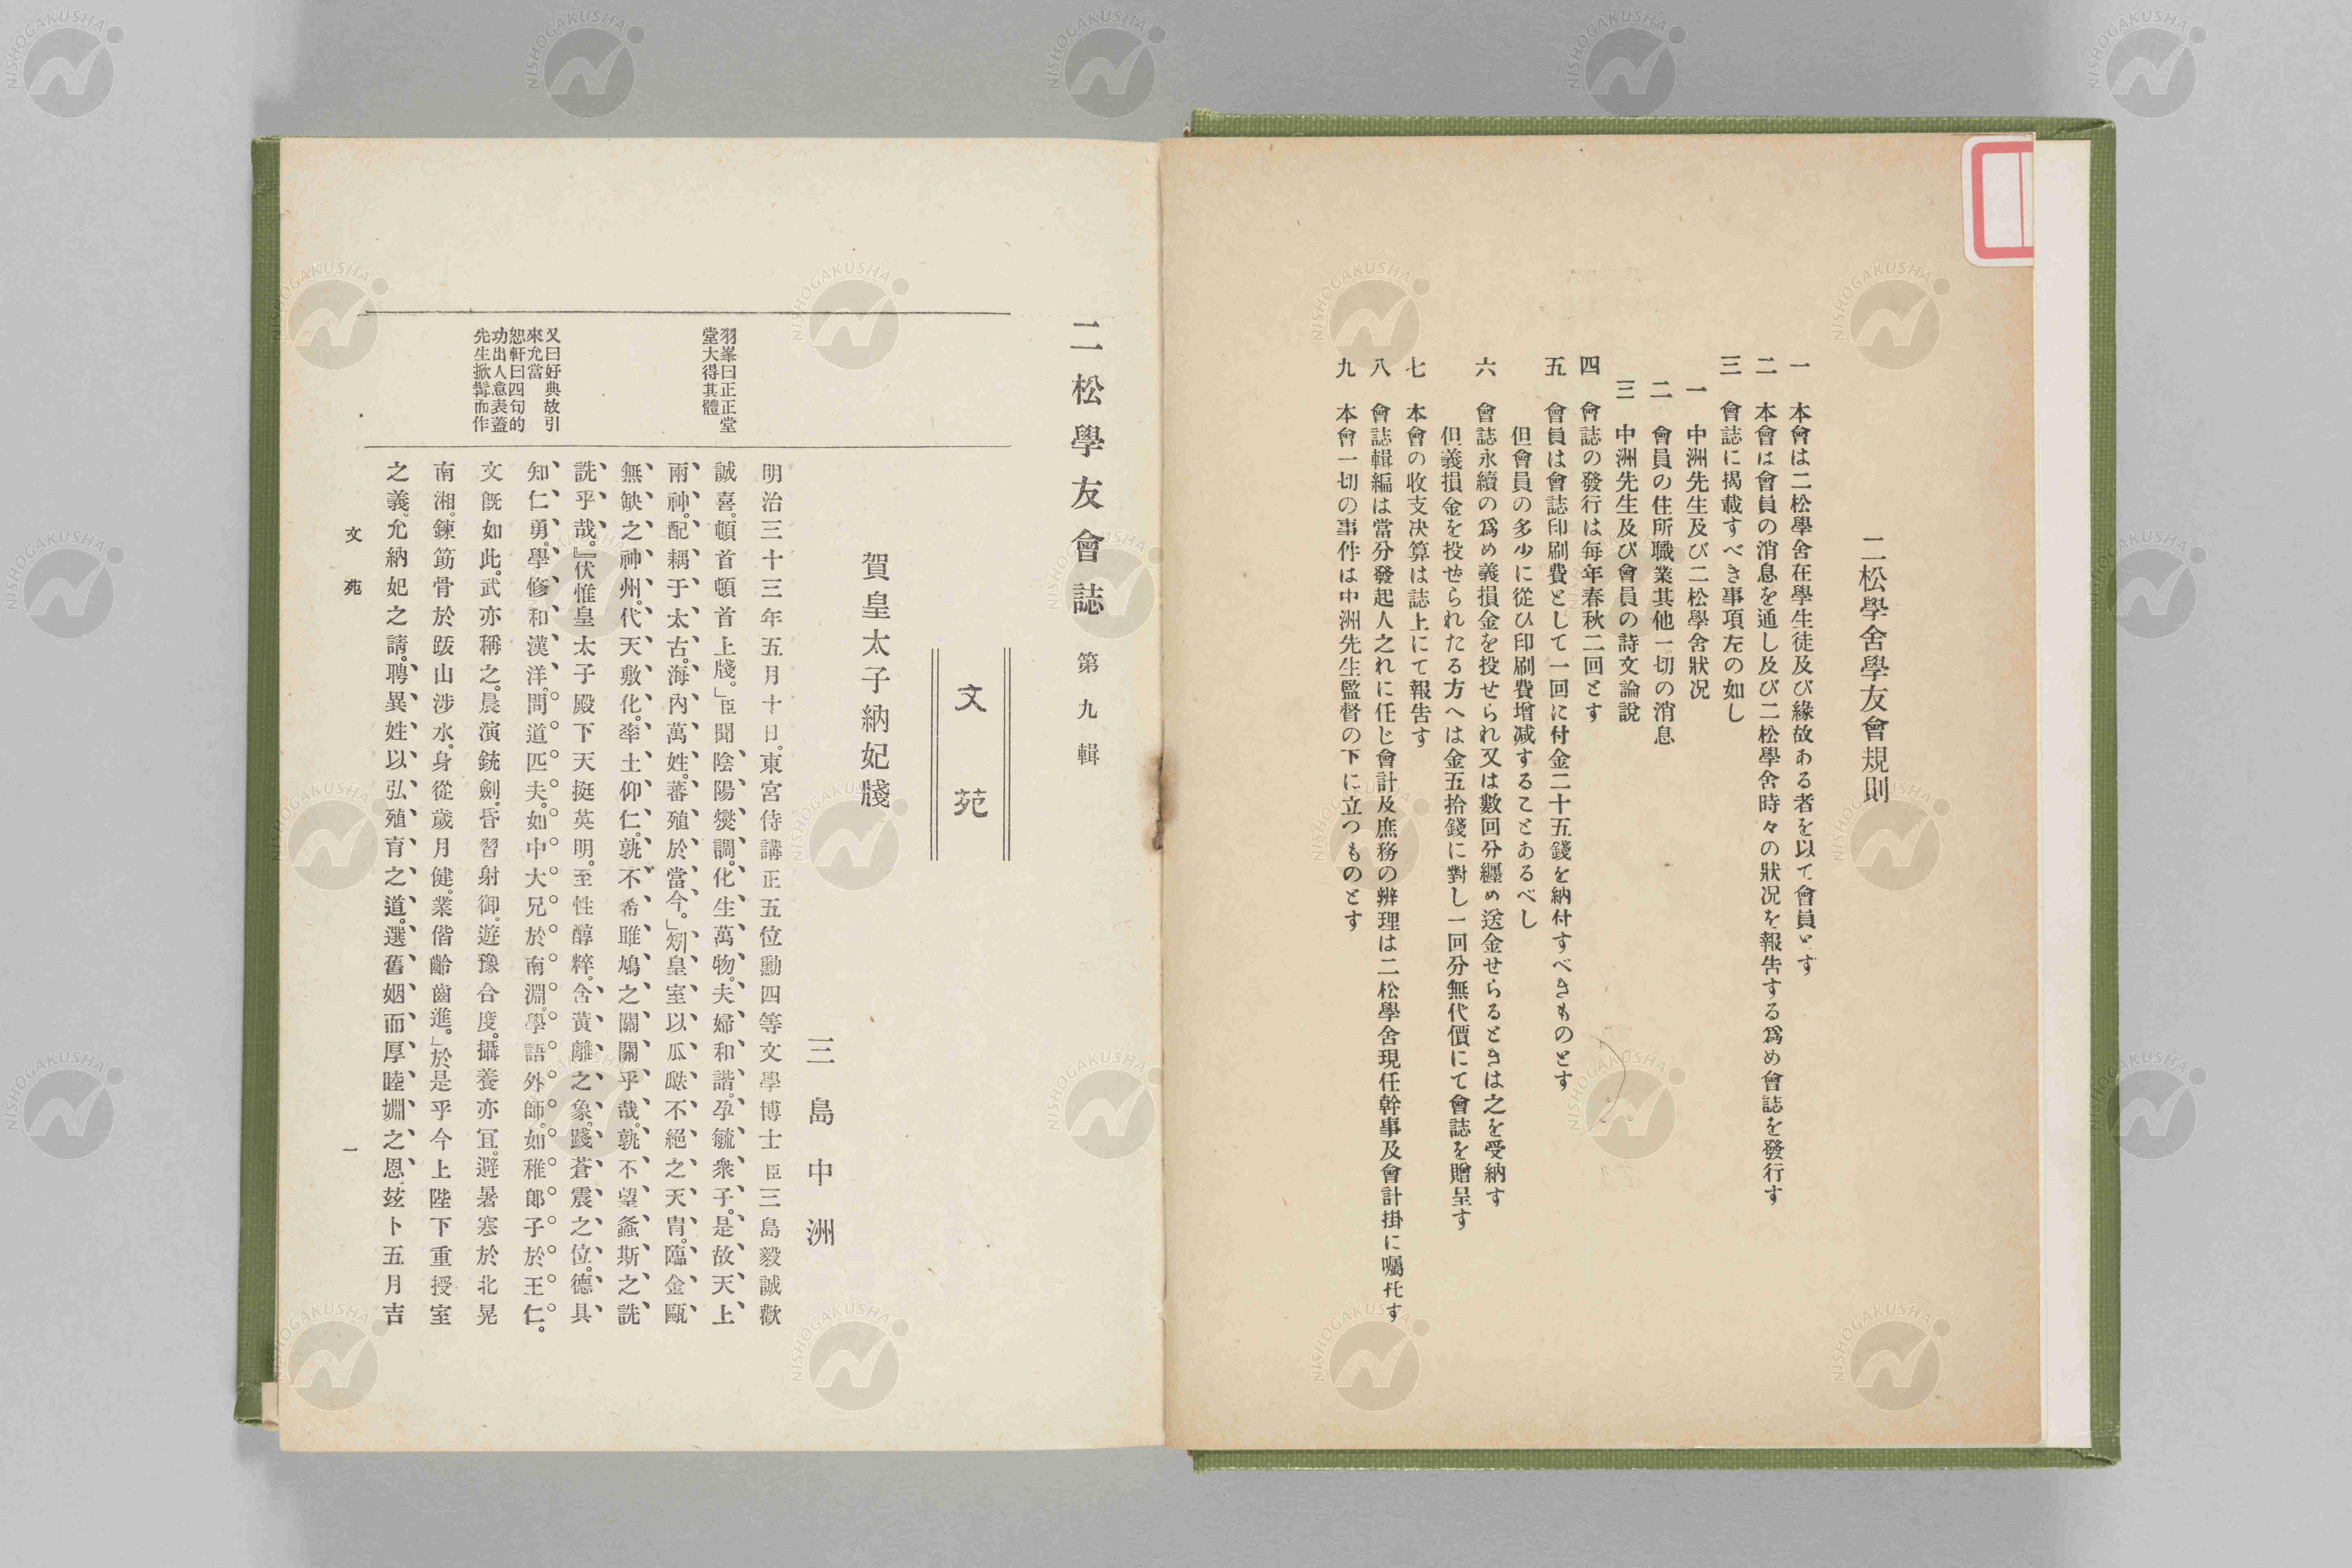 二松學舍學友會規則
一　本會は二松學舍在學生徒及び緣故ある者を以て會員とす
二　本會は會員の消息を通し及び二松學舍時々の狀況を報告する爲め會誌を發行す
三　會誌に揭載すべき事項左の如し
一　中洲先生及び二松學舍狀況
二　會員の住所職業其他一切の消息
三　中洲先生及び會員の詩文論說
四　會誌の發行は每年春秋二回とす
五　會員は會誌印刷費として一回に付金二十五錢を納付すべきものとす
但會員の多少に從ひ印刷費增减することあるべし
六　會誌永續の爲め義損金を投せられ又は數回分纒め送金せらるときは之を受納す
但義損金を投せられたる方へは金五拾錢に對し一回分無代價にて會誌を贈呈す
七　本會の收支決算は誌上にて報告す
八　會誌輯編は當分發起人之れに任じ會計及庶務の辨理は二松學舍現任幹事及會計掛に囑托す
九　本會一切の事件は中洲先生監督の下に立つものとす
二松學友會誌　第九輯
文苑
賀皇太子納妃牋
三島中洲
明治三十三年五月十日。東宮侍講正五位勳四等文學博士臣三島毅誠歡
誠喜。頓首頓首上牋。」臣聞陰陽燮調。化生萬物。夫婦和諧。孕毓衆子。是故天上
兩神。配耦于太古。海內萬姓。蕃殖於當今。」矧皇室以瓜瓞不絕之天冑。臨金甌
無缺之神州。代天敷化。率土仰仁。孰不希雎鳩之關關乎哉。孰不望螽斯之詵
詵乎哉。』伏惟皇太子殿下天挺英明。至性醇粹。含黃離之象。踐蒼震之位。德具
知仁勇。學修和漢洋。問道匹夫。如中大兄於南淵。學語外師。如稚郎子於王仁。
文既如此。武亦稱之。晨演銃劍。昏習射御。遊豫合度。攝養亦宜。避暑寒於北晃
南湘。鍊筋骨於跋山涉水。身從歲月健。業偕齡齒進。」於是乎今上陛下重授室
之義。允納妃之請。聘異姓以弘殖育之道。選舊姻而厚睦婣之恩。玆卜五月吉
羽峯曰正正堂
堂大得其體
又曰好典故引
來允當
恕軒曰四句的
功出人意表蓋
先生掀髯而作
文苑
一
NISHOGAKUSHA